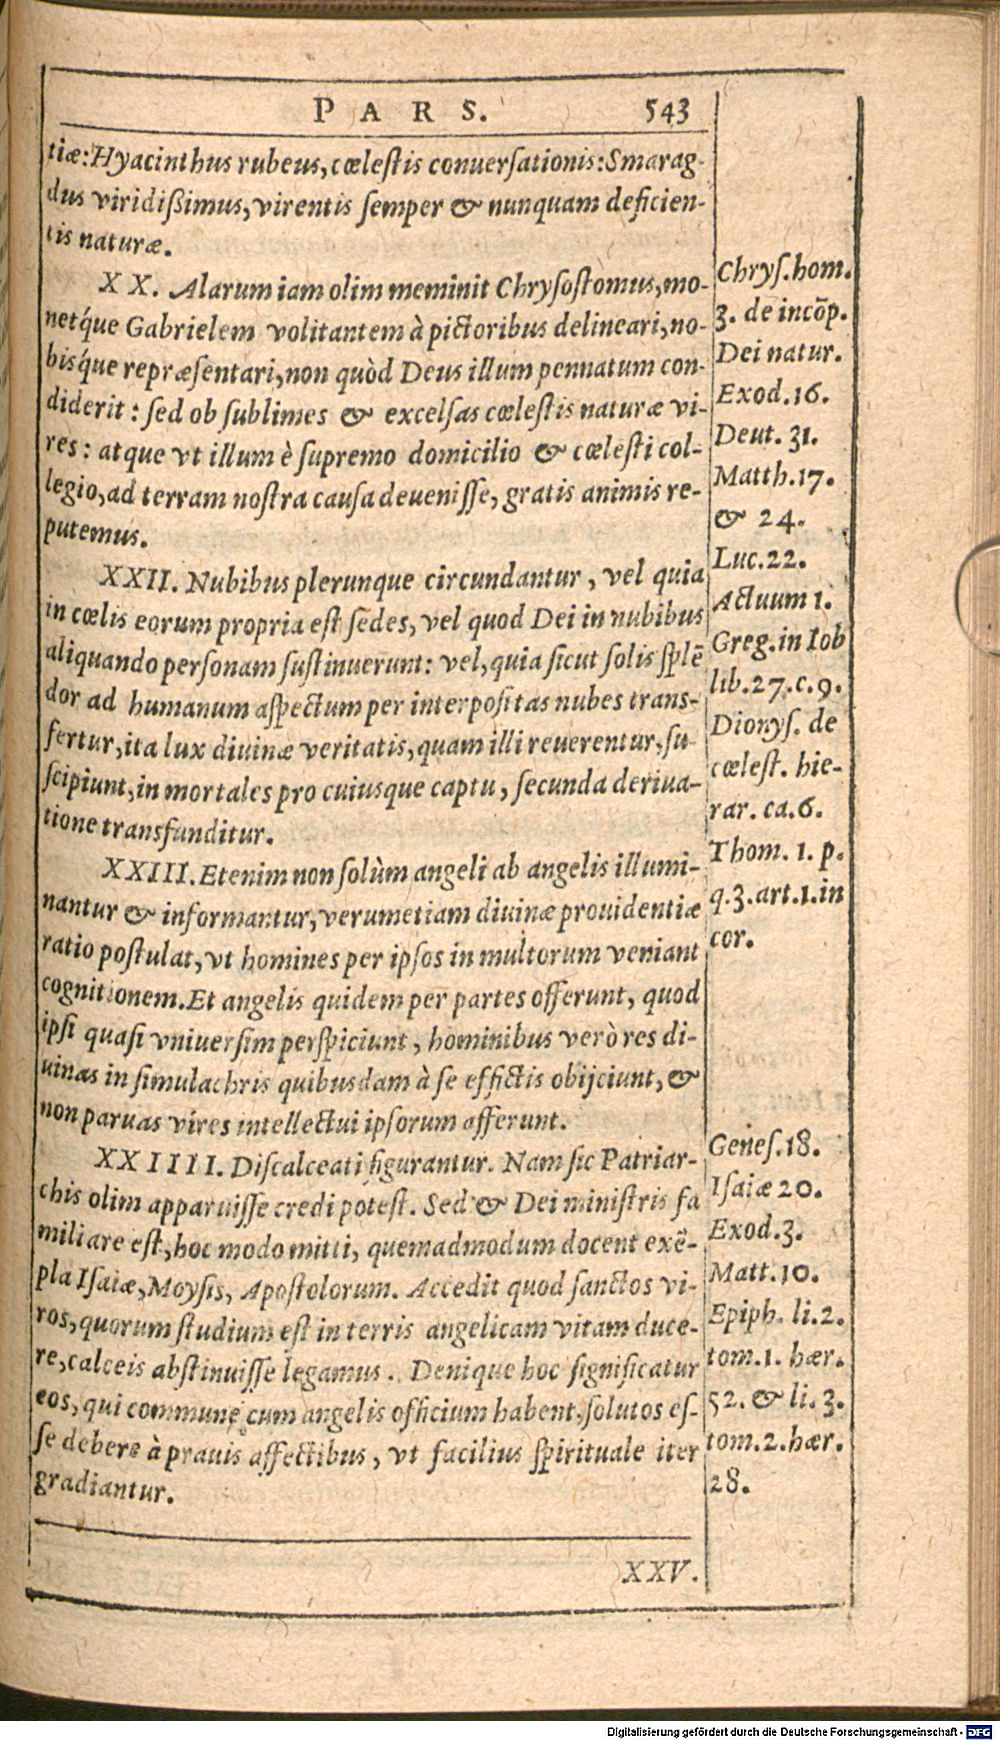 PARS. 543
tiæ: Hyacinthus rubeus, cœlestis conuersationis: Smarag-
dus viridißimus, virentis semper & nunquam deficien-
tis naturæ.
XX. Alarum iam olim meminit Chrysostomus, mo-
netq́ue Gabrielem volitantem à pictoribus delineari, no-
bisq́ue repræsentari, non quòd Deus illum pennatum con-
diderit: sed ob sublimes & excelsas cœlestis naturæ vi-
res: atque vt illum è supremo domicilio & cœlesti col-
legio, ad terram nostra causa deuenisse, gratis animis re-
putemus.
XXII. Nubibus plerunque circundantur, vel quia
in cœlis eorum propria est sedes, vel quod Dei in nubibus
aliquando personam sustinuerunt: vel, quia sicut solis splē
dor ad humanum aspectum per interpositas nubes trans-
fertur, ita lux diuinæ veritatis, quam illi reuerentur, su-
scipiunt, in mortales pro cuiusque captu, secunda deriua-
tione transfunditur.
XXIII. Etenim non solùm angeli ab angelis illumi-
nantur & informantur, verumetiam diuinæ prouidentiæ
ratio postulat, vt homines per ipsos in multorum veniant
cognitionem. Et angelis quidem per partes offerunt, quod
ipsi quasi vniuersim perspiciunt, hominibus verò res di-
uinas in simulachris quibusdam à se effictis obijciunt, &
non paruas vires intellectui ipsorum afferunt.
XXIIII. Discalceati figurantur. Nam sic Patriar-
chis olim apparuisse credi potest. Sed & Dei ministris fa
miliare est, hoc modo mitti, quemadmodum docent exē-
pla Isaiæ, Moysis, Apostolorum. Accedit quod sanctos vi-
ros, quorum studium est in terris angelicam vitam duce-
re, calceis abstinuisse legamus. Denique hoc significatur
eos, qui commune cum angelis officium habent, solutos es-
se debere à prauis affectibus, vt facilius spirituale iter
gradiantur.
XXV.
Chrys. hom.
3. de incōp.
Dei natur.
Exod. 16.
Deut. 31.
Matth. 17.
& 24.
Luc. 22.
Actuum 1.
Greg. in Iob
lib. 27. c. 9.
Dionys. de
cœlest. hie-
rar. ca. 6.
Thom. 1. p.
q. 3. art. 1. in
cor.
Genes. 18.
Isaiæ 20.
Exod. 3.
Matt. 10.
Epiph. li. 2.
tom. 1. hær.
52. & li. 3.
tom. 2. hær.
28.
Digitalisierung gefördert durch die Deutsche Forschungsgemeinschaft - DFG